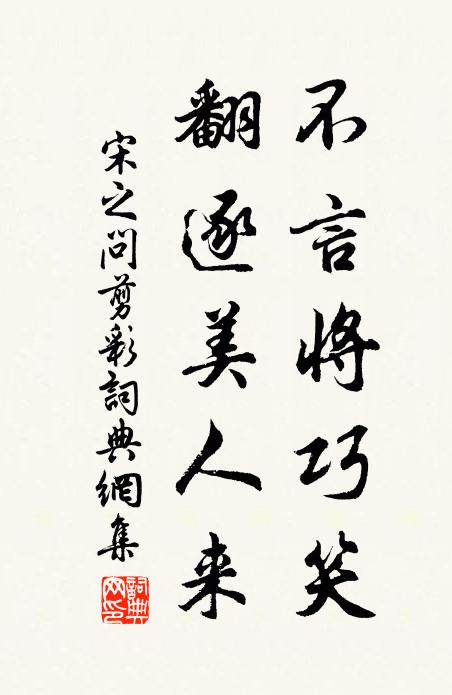 不言將巧笑
翻逐美人来
宋之問剪彩詞典網集
詞典網印